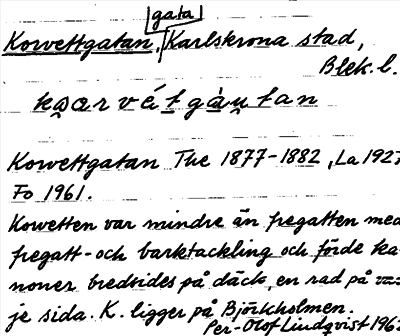 gata
Korvettgatan, Karlskrona stad,
Blek. l.
Korvettgatan The 1877-1882, La 1927
Fo 1961.
Korvetten var mindre än fregatten med
fregatt- och barktackling och förde ka-
noner bredsides på däck, en rad på var-
je sida. K. ligger på Björkholmen.
Per-Olof Lindqvist 196